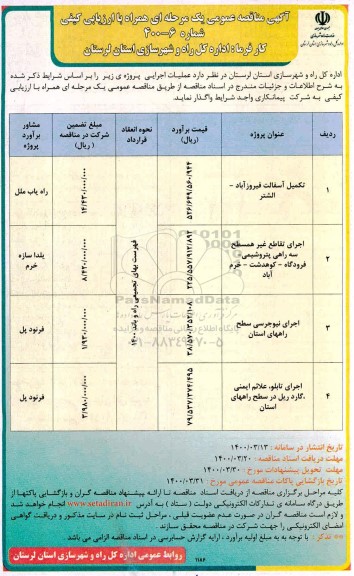 آگهی مناقصه عمومی یک مرحله ای همراه با ارزیابی کیفی
شماره ۶-۴۰۰
کار فرما: اداره کل راه و شهرسازی استان لرستان
اداره کل راه و شهرسازی استان لرستان در نظر دارد عملیات اجرایی پروژه ی زیر را بر اساس شرایط ذکر شده
به شرح اطلاعات و جزئیات مندرج در اسناد مناقصه از طریق مناقصه عمومی یک مرحله ای همراه با ارزیابی
کیفی به شرکت پیمانکاری واجد شرایط واگذار نماید.
ردیف
عنوان پروژه
قیمت برآورد (ریال)
نحوه انعقاد قرارداد
مبلغ تضمین شرکت در مناقصه (ریال)
مشاور برآورد پروژه
فهرست بهای تجمیعی راه و باند ۱۴۰۰
۱
تکمیل آسفالت فیروزآباد - الشتر
راه یاب ملل
۲
اجرای تقاطع غیر همسطح سه راهی پتروشیمی - فرودگاه - کوهدشت - خرم آباد
یلدا سازه خرم
۳
اجرای نیوجرسی سطح راههای استان
فرنود پل
۴
اجرای تابلو، علائم ایمنی ،گارد ریل در سطح راههای استان
فرنود پل
تاریخ انتشار در سامانه : ۱۴۰۰/۰۳/۱۳
مهلت دریافت اسناد مناقصه : ۱۴۰۰/۰۳/۲۰
مهلت تحویل پیشنهادات مورخ : ۱۴۰۰/۰۳/۳۰
تاریخ بازگشایی پاکات مناقصه عمومی مورخ : ۱۴۰۰/۰۳/۳۱
کلیه مراحل برگزاری مناقصه از دریافت اسناد مناقصه تا ارائه پیشنهاد مناقصه گران و بازگشایی پاکتها از
طریق درگاه سامانه ی تدارکات الکترونیکی دولت ( ستاد ) به آدرس www.setadiran.ir انجام خواهد شد
و لازم است مناقصه گران در صورت عدم عضویت قبلی ، مراحل ثبت نام در سایت مذکور و دریافت گواهی
امضای الکترونیکی را جهت شرکت در مناقصه محقق سازند .
** تذکر : با توجه به مبلغ اولیه برآورد ، ارایه گزارش حسابرسی در اسناد مناقصه الزامی می باشد
روابط عمومی اداره کل راه و شهرسازی استان لرستان
۱۱۸۶